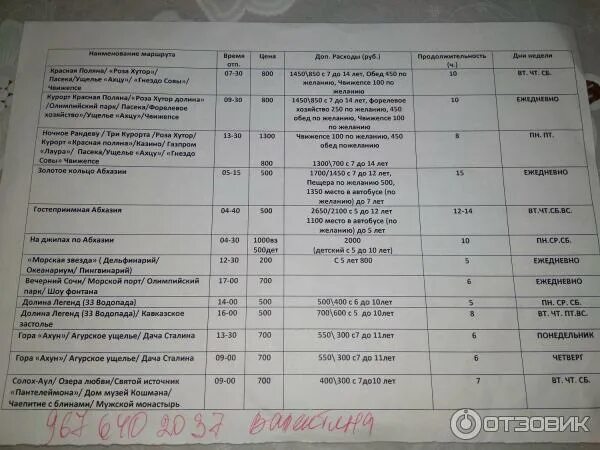 Наименование маршрута Время отп. Цена Доп. Расходы (руб.) Продолжительность (ч.) Дни недели
Красная Поляна/ «Роза Хутор»/ Пасека/Ущелье «Ахцу»/ «Гнездо Совы»/ Чвижепсе 07-30 800 1450\850 с 7 до 14 лет, Обед 450 по желанию, Чвижепсе 100 по желанию 10 ВТ. ЧТ. СБ.
Курорт Красная Поляна/«Роза Хутор долина» /Олимпийский парк/ Пасека/Форелевое хозяйство/Ущелье «Ахцу»/Чвижепсе 09-30 800 1450\850 с 7 до 14 лет, форелевое хозяйство 250 по желанию, 450 обед по желанию, Чвижепсе 100 по желанию 10 ЕЖЕДНЕВНО
Ночное Рандеву / Три Курорта/ Роза Хутор/ Курорт «Красная поляна»/Казино/ Газпром «Лаура»/ Пасека/Ущелье «Ахцу»/ «Гнездо Совы» Чвижепсе 13-30 1300 800 Чвижепсе 100 по желанию, 450 обед пожеланию 1300\700 с 7 до 14 лет 8 ПН. ПТ.
Золотое кольцо Абхазии 05-15 500 1700/1450 с 7 до 12 лет, Пещера по желанию 500, 1350 место в автобусе (по желанию) до 7 лет 15 ЕЖЕДНЕВНО
Гостеприимная Абхазия 04-40 500 2650/2100 с 5 до 12 лет 1100 место в автобусе (по желанию) до 5 лет 12-14 ВТ.ЧТ.СБ.ВС.
На джипах по Абхазии 04-30 1000вз 500дет 2000 (детский с 5 до 10 лет) 10 ПН.СР.СБ.
«Морская звезда» ( Дельфинарий/ Океанариум/ Пингвинарий) 12-30 200 С 5 лет 800 5 ЕЖЕДНЕВНО
Вечерний Сочи/ Морской порт/ Олимпийский парк/ Шоу фонтана 17-00 700 6 ЕЖЕДНЕВНО
Долина Легенд (33 Водопада) 14-00 500 500\400 с 6 до 10лет 5 ПН. СР. СБ.
Долина Легенд (33 Водопада)/ Кавказское застолье 16-00 500 700\600 с 5 до 10лет 8 ВТ. ЧТ. ПТ.ВС.
Гора «Ахун»/ Агурское ущелье/ Дача Сталина 13-30 700 550\ 300 с7 до 11лет 6 ПОНЕДЕЛЬНИК
Гора «Ахун»/ Агурское ущелье/ Дача Сталина 09-00 700 550\ 300 с7 до 11лет 6 ЧЕТВЕРГ
Солох-Аул/ Озера любви/Святой источник «Пантелеймона»/ Дом музей Кошмана/ Чаепитие с блинами/ Мужской монастырь 09-00 700 400\300 с 7 до10 лет 7 ВТ. ЧТ. СБ.
967 640 2037 Валентина
ОТЗОВИК